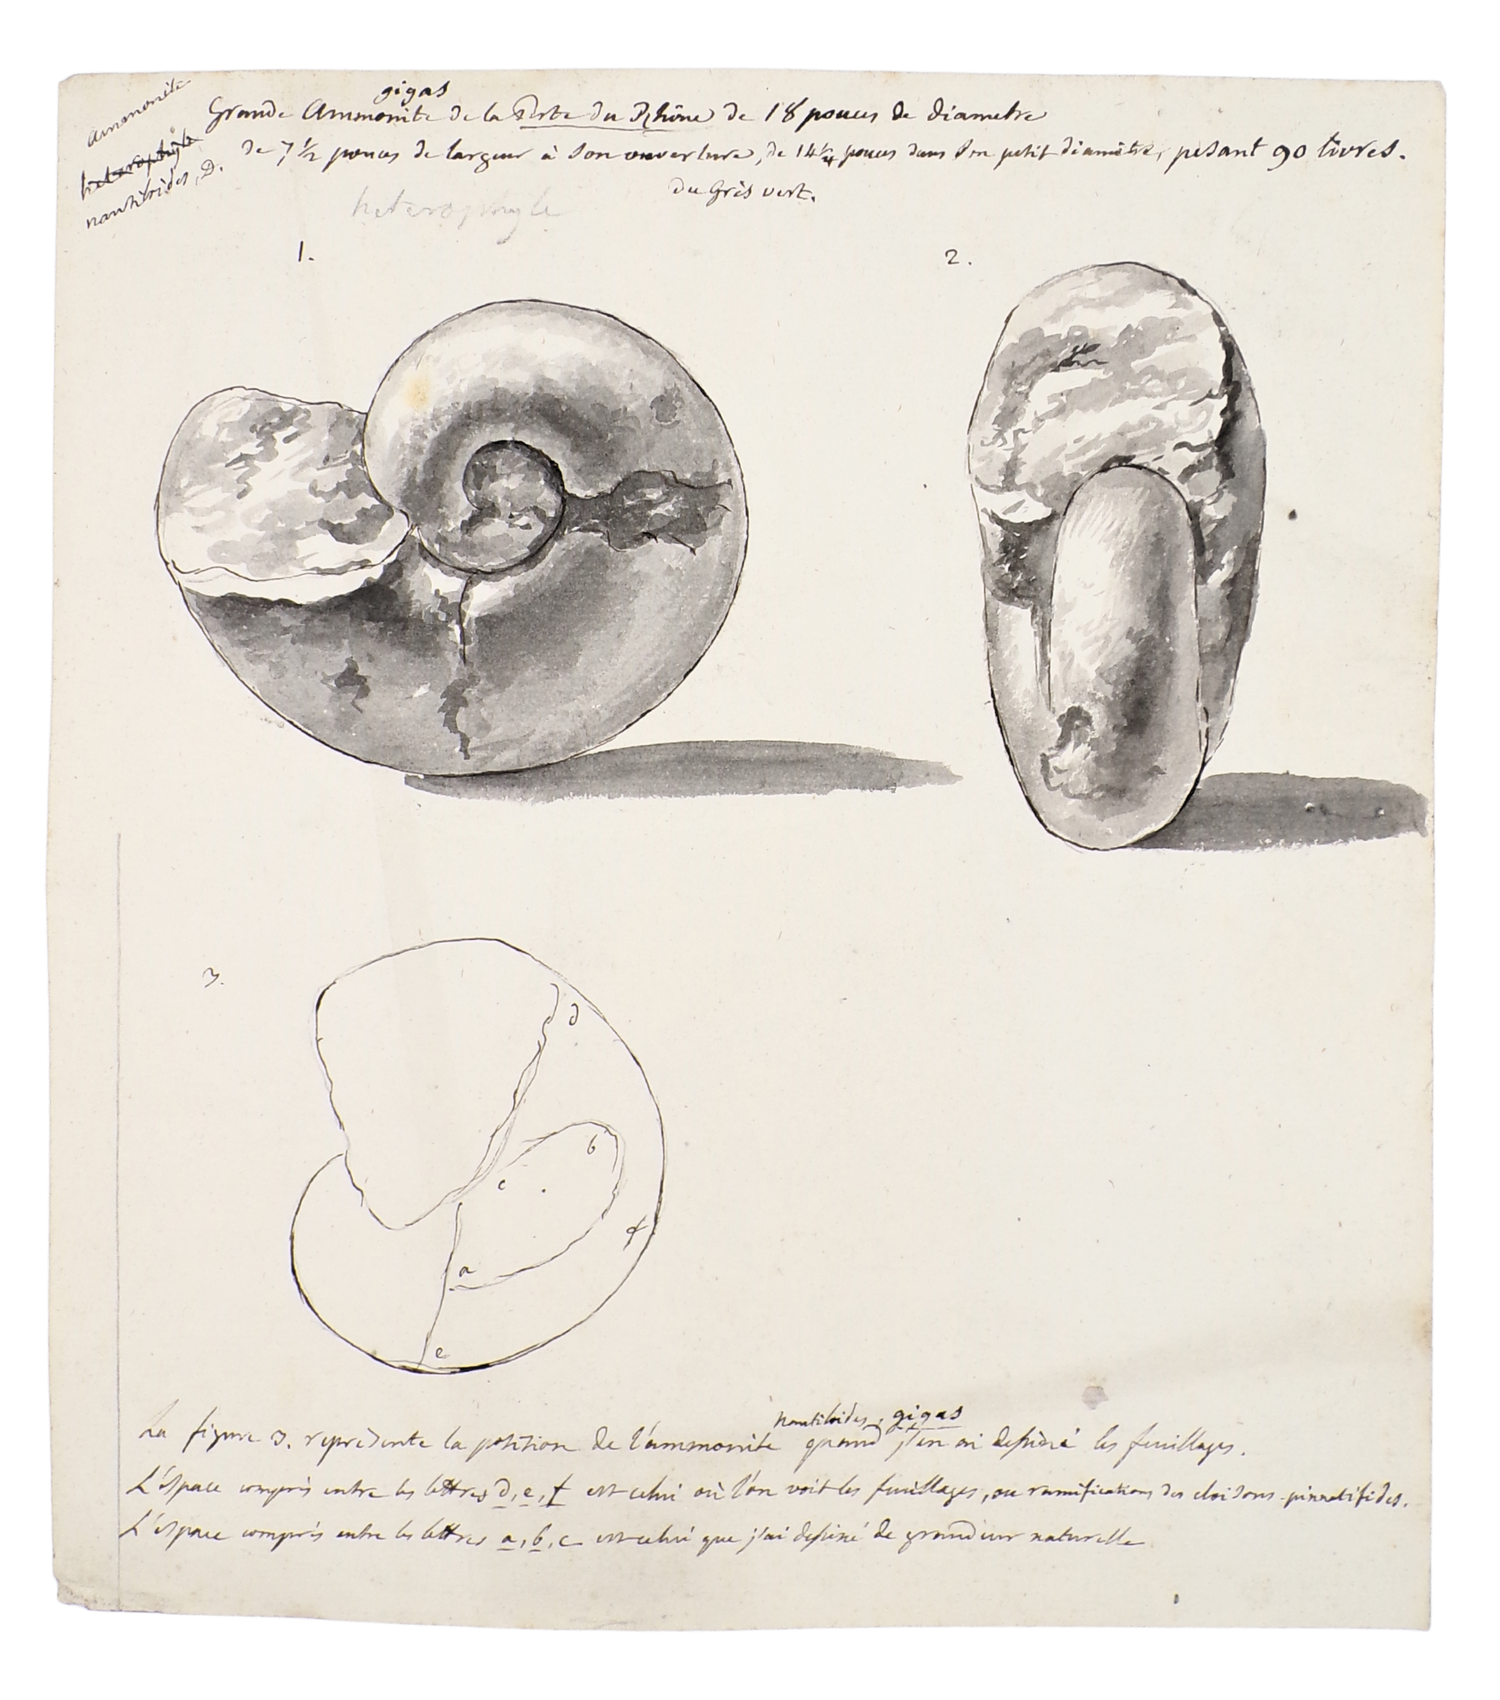 Ammonite
heterophyle
nautiloides, D.
gigas
Grande Ammonite de la Perte du Rhône de 18 pouces de diametre
de 7 1/2 pouces de largeur à son ouverture, de 14 1/4 pouces dans son petit diamètre, pesant 90 livres.
du Grès vert.
heterophyle
1.
2.
3.
d
b
c
f
a
e
nautiloides, gigas
La figure 3. représente la position de l'ammonite quand j'en ai dessiné les feuillages.
L'espace compris entre les lettres d, e, f est celui où l'on voit les feuillages, ou ramifications des cloisons pinnatifides.
L'espace compris entre les lettres a, b, c est celui que j'ai dessiné de grandeur naturelle